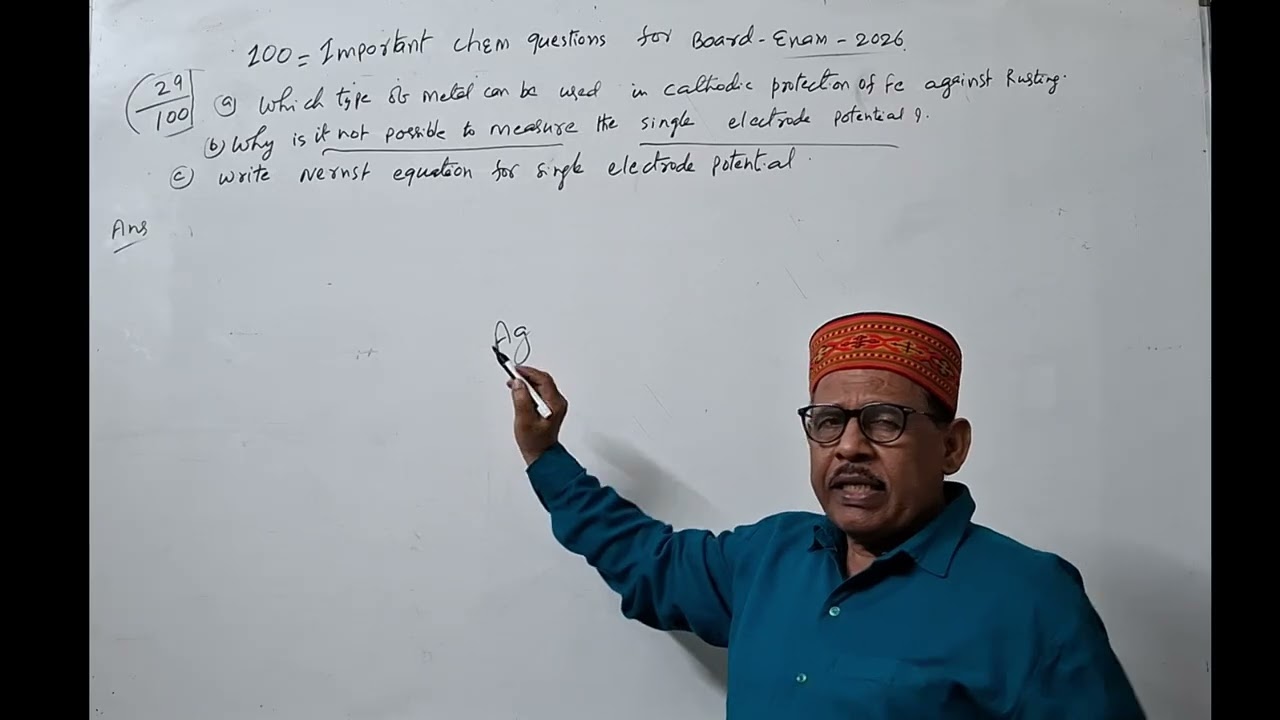 100 = Important chem questions for Board-Exam-2026.
29/100
(a) Which type of metal can be used in cathodic protection of Fe against Rusting.
(b) Why is it not possible to measure the single electrode potential ?.
(c) Write Nernst equation for single electrode potential.
Ans
Ag